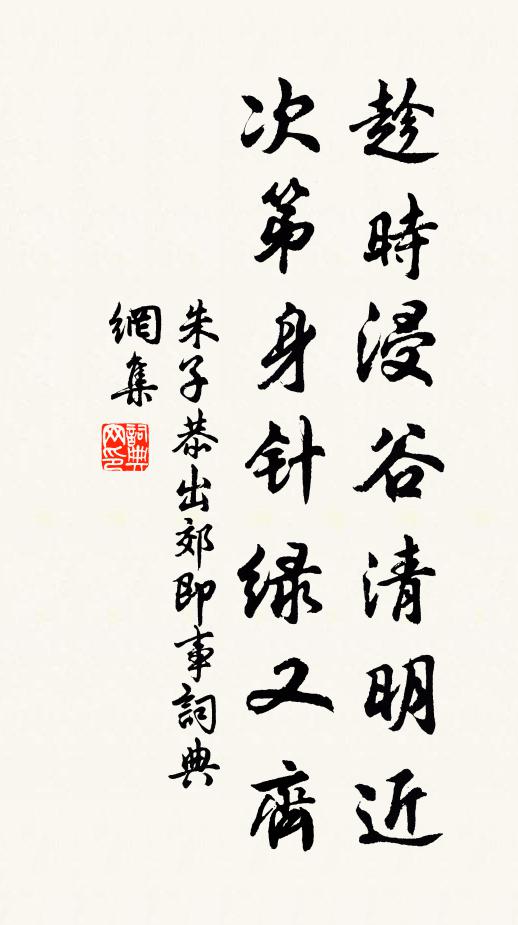 趁時浸谷清明近
次第身针绿又齊
朱子恭出郊即事詞典
網集
詞典网印